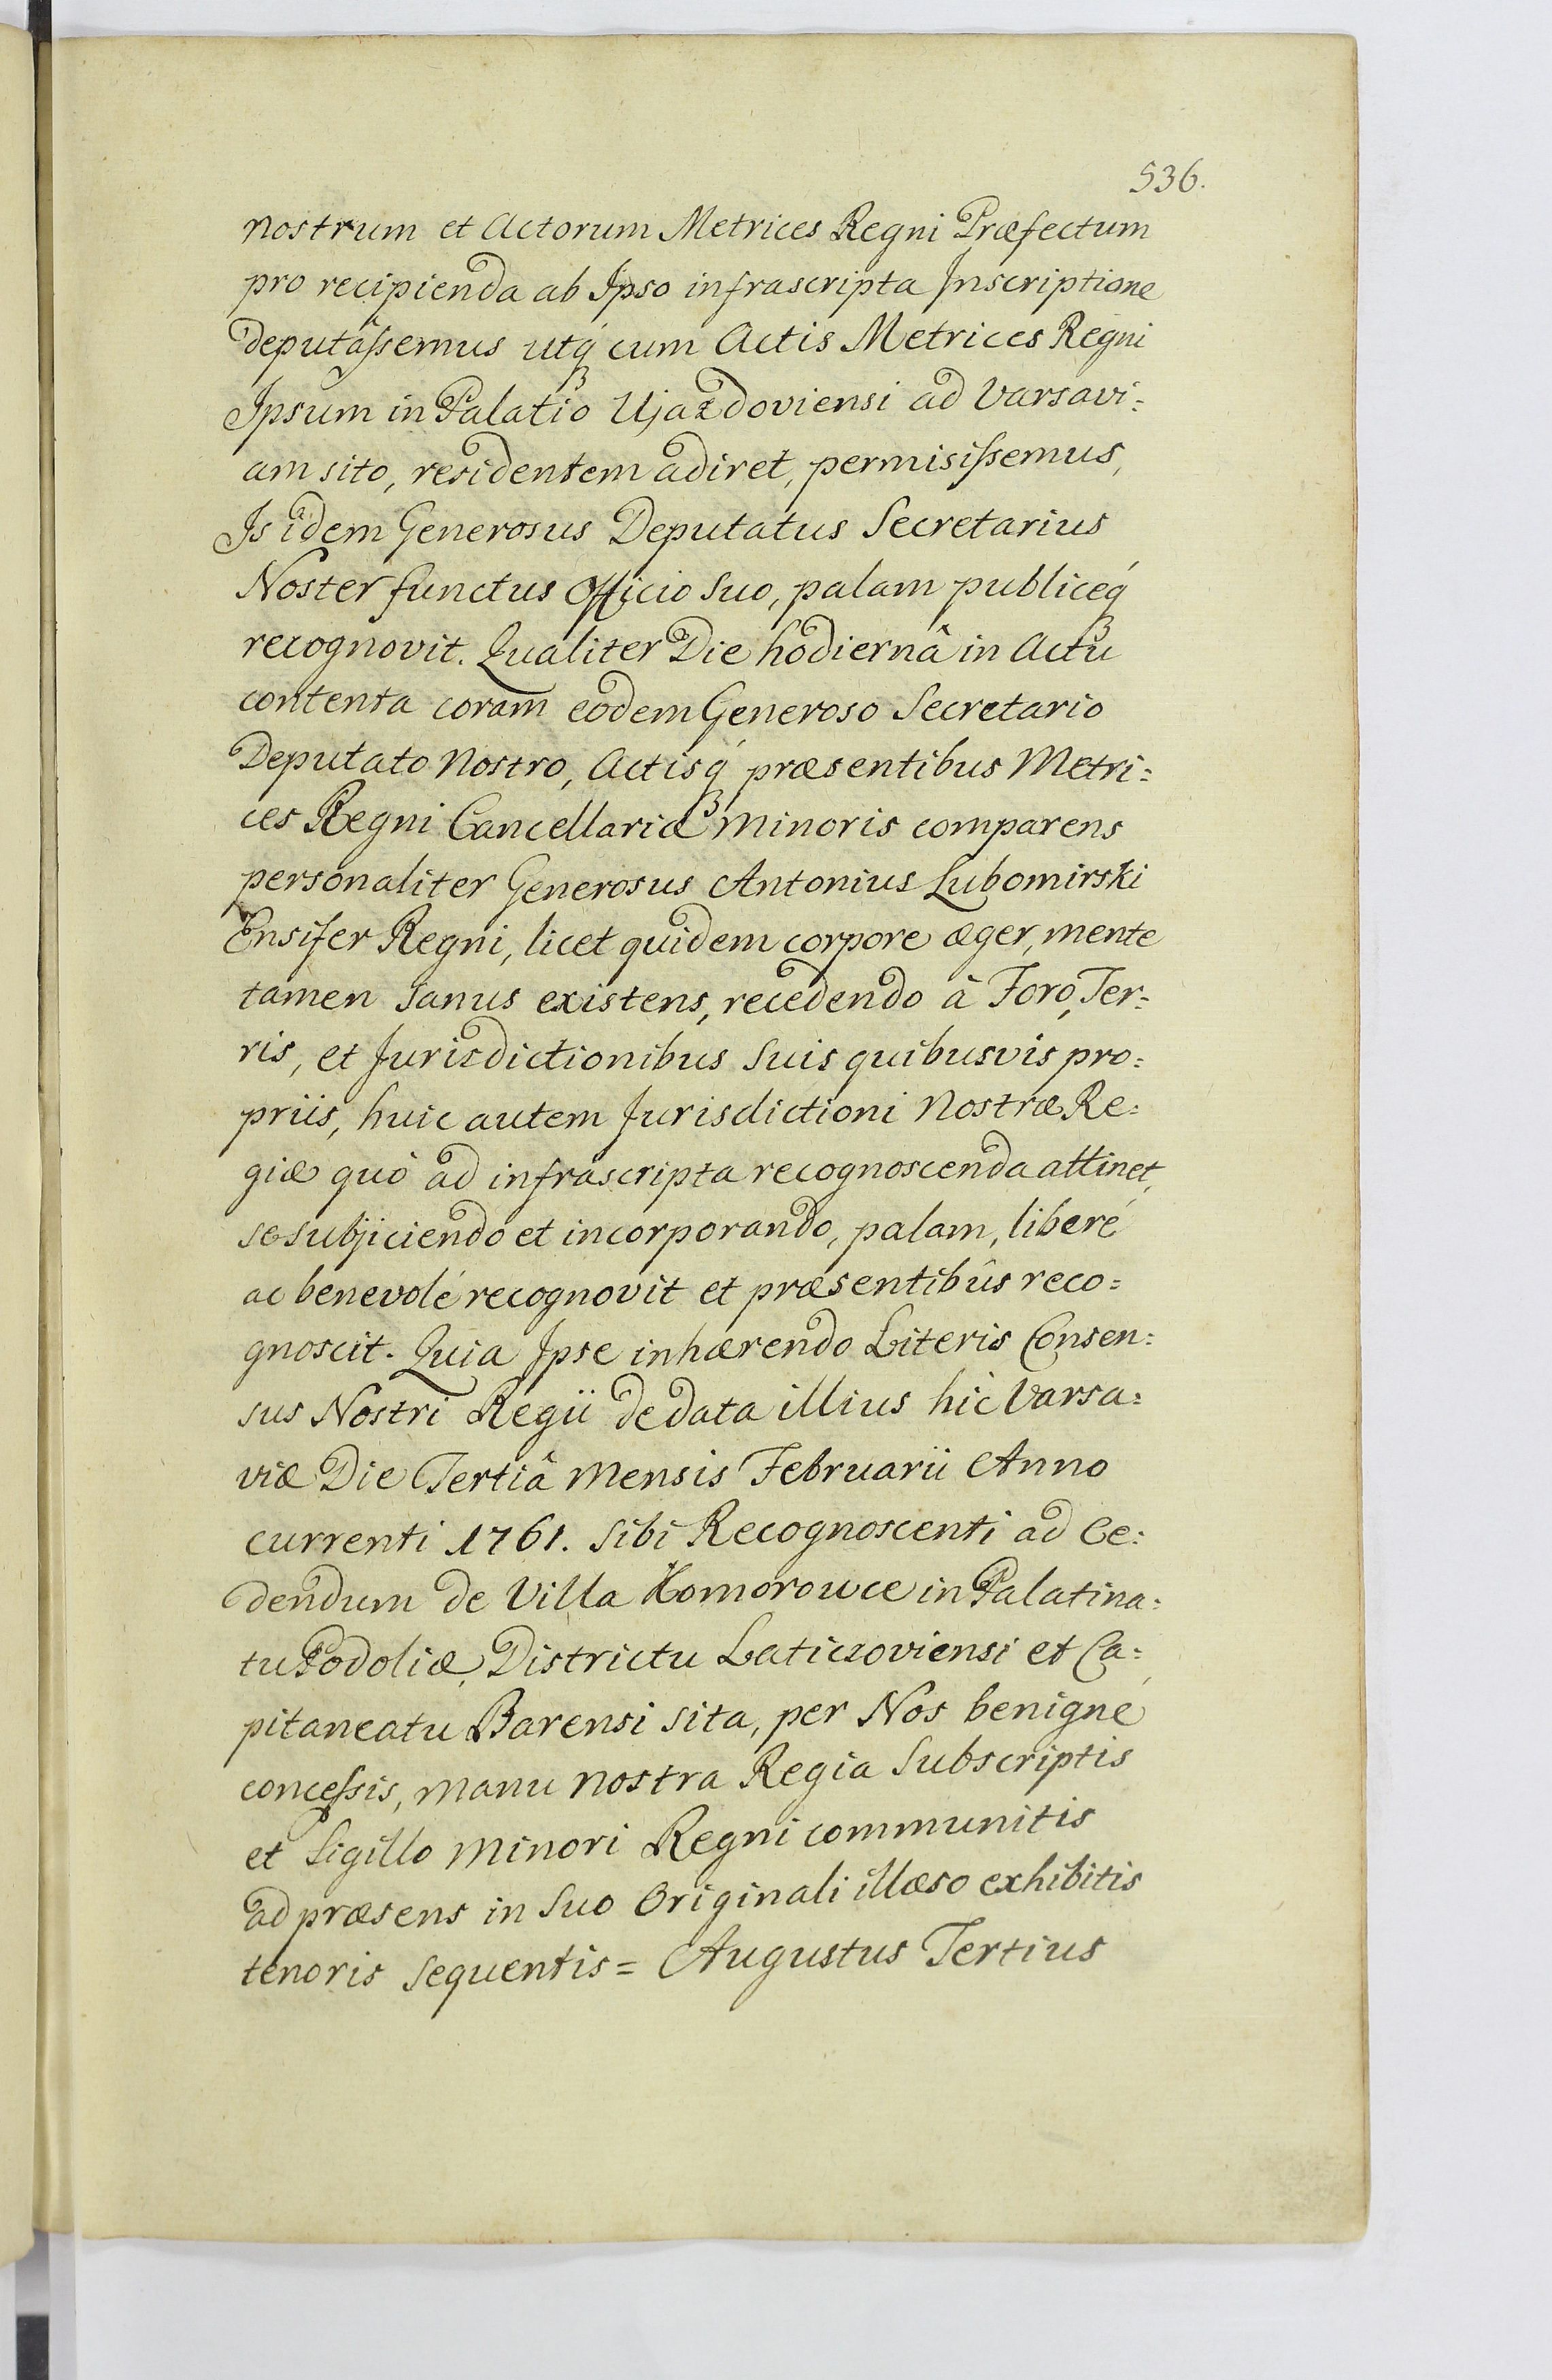 536.
nostrum et Actorum Metrices Regni Præfectum
pro recipienda ab Ipso infrascripta Inscriptione
deputâſsemus utq́ꝫ cum Actis Metrices Regni
Ipsum in Palatio Ujazdoviensi ad Varsavi=
am sito, residentem adiret, permisiſsemus,
Is idem Generosus Deputatus Secretarius
Noster functus Officio suo, palam publiceq́ꝫ
recognovit. Qualiter Die hodiernâ in Actu
contenta coram eodem Generoso Secretario
Deputato Nostro, Actisq́ꝫ præsentibus Metri=
ces Regni Cancellariæ Minoris comparens
personaliter Generosus Antonius Lubomirski
Ensifer Regni, licet quidem corpore æger, mente
tamen sanus existens, recedendo à Foro, Ter=
ris, et Jurisdictionibus suis quibusvis pro=
priis, huic autem Jurisdictioni Nostræ Re=
giæ quò ad infrascripta recognoscenda attinet,
se subjiciendo et incorporando, palam, liberé
ac benevolé recognovit et præsentibûs reco=
gnoscit. Quia Ipse inhærendo Literis Consen=
sus Nostri Regii de data illius hic Varsa=
viæ Die Tertiâ Mensis Februarii Anno
currenti 1761. sibi Recognoscenti ad Ce=
dendum de Villa Komorowce in Palatina=
tu Podoliæ, Districtu Laticzoviensi et Ca=
pitaneatu Barensi sita, per Nos benigné
conceſsis, manu nostra Regia subscriptis
et Sigillo Minori Regni communitis
ad præsens in suo Originali illæso exhibitis
tenoris sequentis = Augustus Tertius